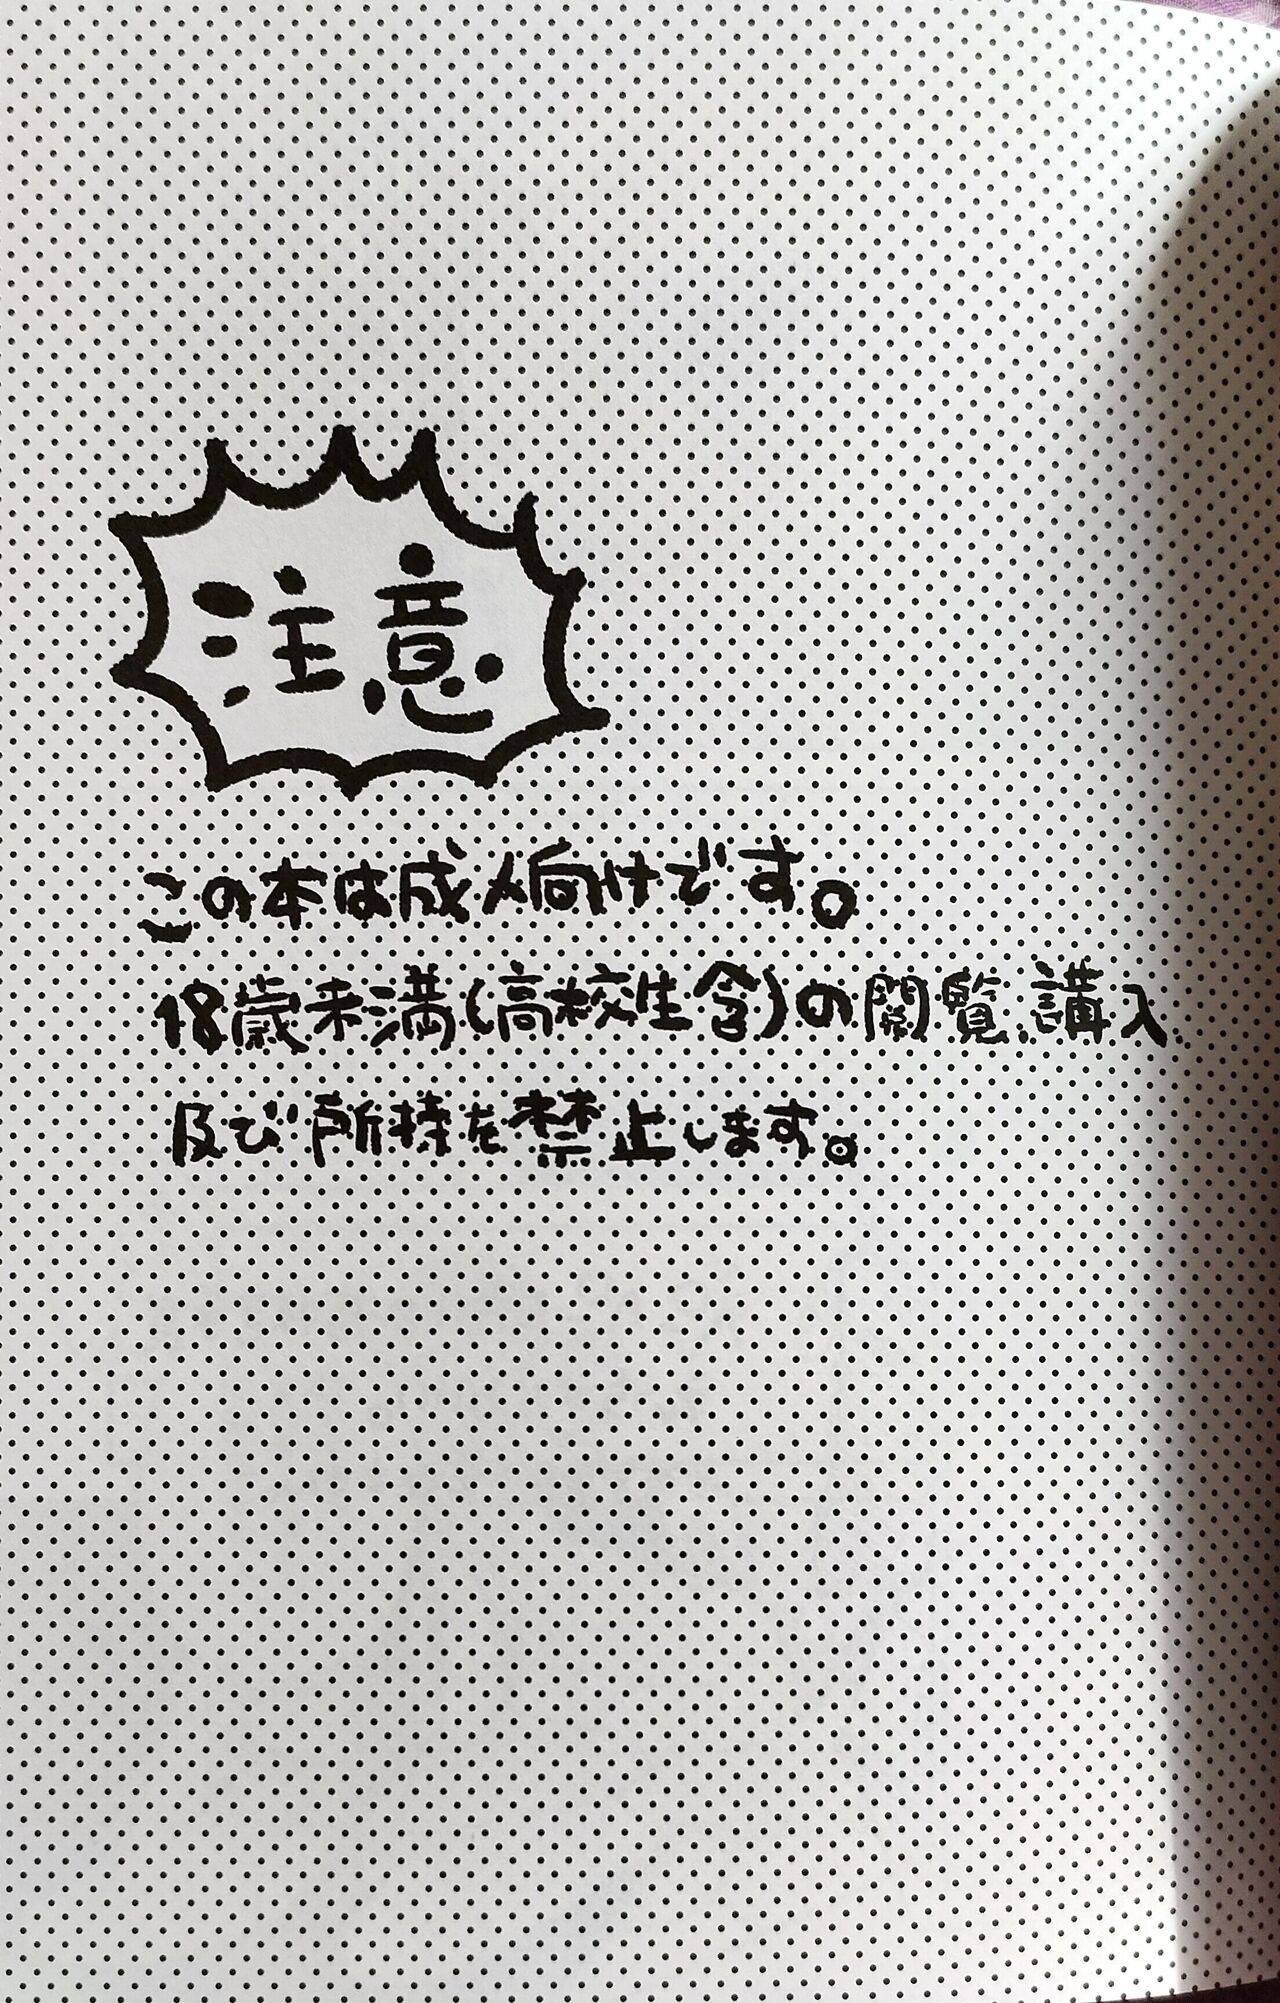 注意
この本は成人向けです。
18歳未満(高校生含)の閲覧、講入
及び所持を禁止します。